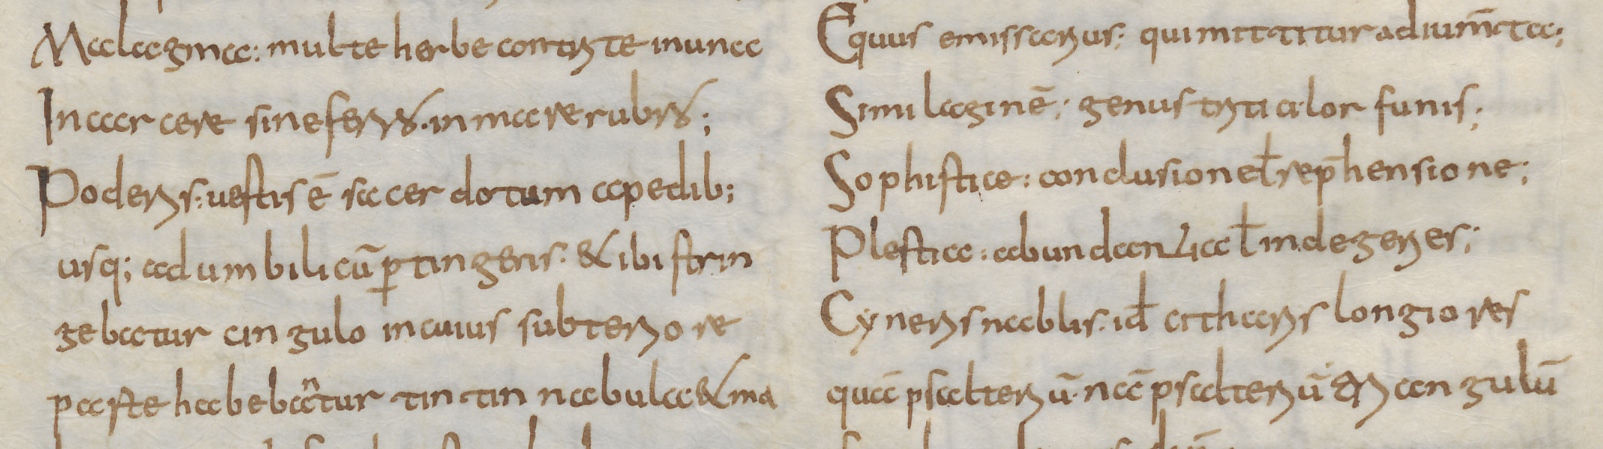 Malagma: multe herbe contrite inuna
In carcere sineferꝝ. in mare rubꝝ;
Poderis: uestis ē sacerdotum apedib;
usq; adumbilicū ꝑtingens: & ibi strin
gebatur cingulo incuius subteriore
parte habebāntur tintinnabula & ma
Equus emissarius: qui mittitur adium̄ta;
Similaginē: genus tritici lor funis;
Sophistice: conclusione ł rep̄hensione;
Plestia: abundantia ł indegeries;
Cyneris nablis: id̄ citharis longiores
quā psalteriū. nā psalteriū triangulū